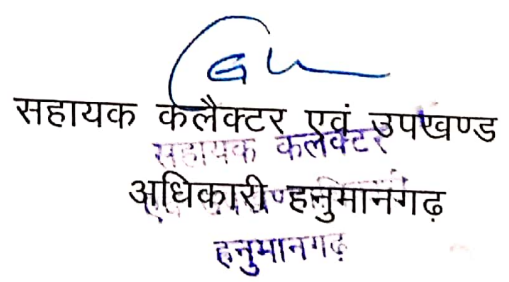 सहायक कलैक्टर एवं उपखण्ड
सहायक कलेक्टर
अधिकारी हनुमानगढ़
हनुमानगढ़